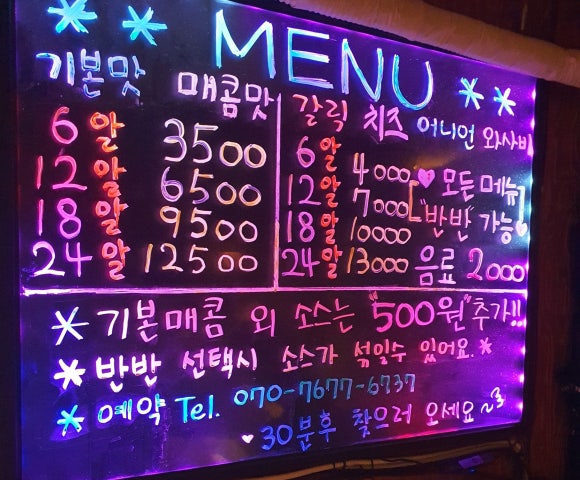 MENU
기본맛 매콤맛
6알 3500
12알 6500
18알 9500
24알 12500
갈릭 치즈 어니언 와사비
6알 4000
12알 7000
18알 10000
24알 13000
♥ 모든 메뉴
"반반 가능 ♥
음료 2000
* 기본매콤 외 소스는 "500원" 추가!!
* 반반 선택시 소스가 섞일수 있어요. *
* 예약 Tel. 070-7677-6737
♥ 30분후 찾으러 오세요~